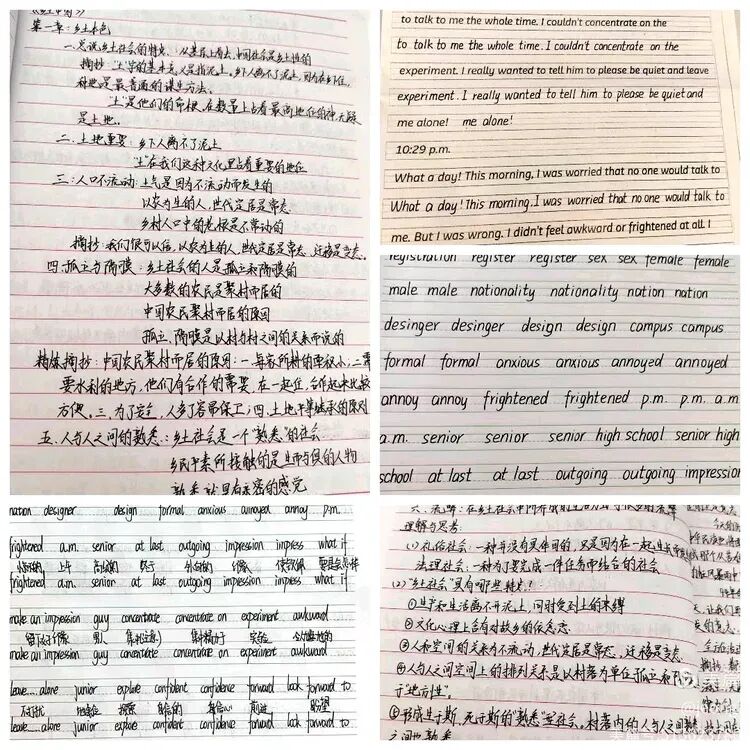 《乡土中国》
第一章:乡土本色
一.总说乡土社会的特点:从基层上看去,中国社会是乡土性的
摘抄:"土"字的基本意义是指泥土。乡下人离不了泥土,因为在乡下住,
种地是最普通的谋生方法。
"土"是他们的命根。在数量上占着最高地位的神无疑
是土地。
二.土地重要:乡下人离不了泥土
"土"在我们这种文化里占着重要的地位
三:人口不流动:土气是因为不流动而发生的
以农为生的人,世代定居是常态
乡村人口中的老根是不常动的
摘抄:我们很可以信,以农为生的人,世代定居是常态,迁移是变态。
四.孤立与隔膜:乡土社会的人是孤立和隔膜的
大多数的农民是聚村而居的
中国农民聚村而居的原因
孤立、隔膜是以村与村之间的关系而说的
精炼摘抄:中国农民聚村而居的原因:一.每家所耕的面积小,二.需
要水利的地方,他们有合作的需要,在一起住,合作起来比较
方便。三.为了安全,人多了容易保卫;四.土地平等继承的原则
五.人与人之间的熟悉:乡土社会是一个"熟悉"的社会
乡民平素所接触的是生而与俱的人物
熟悉就里有亲密的感觉
to talk to me the whole time. I couldn't concentrate on the
to talk to me the whole time. I couldn't concentrate on the
experiment. I really wanted to tell him to please be quiet and leave
experiment. I really wanted to tell him to please be quiet and
me alone! me alone!
10:29 p.m.
What a day! This morning, I was worried that no one would talk to
What a day! This morning, I was worried that no one would talk to
me. But I was wrong. I didn't feel awkward or frightened at all. I
registration register register sex sex female female
male male nationality nationality nation nation
desinger desinger design design campus campus
formal formal anxious anxious annoyed annoyed
annoy annoy frightened frightened p.m. p.m. a.m
a.m. senior senior senior high school senior high
school at last at last outgoing outgoing impression
nation designer design formal anxious annoyed annoy p.m.
frightened a.m. senior at last outgoing impression impress what if
上午 终于 外向的 印象
frightened a.m. senior at last outgoing impression impress what if
make an impression guy concentrate concentrate on experiment awkward
留下好印象 男人 集中(注意) 集中精力于 实验
make an impression guy concentrate concentrate on experiment awkward
leave....alone junior explore confident confidence forward look forward to
不打扰 探索 自信的 自信心 前进 盼望
leave....alone junior explore confident confidence forward look forward to
理解与思考:
(1)礼俗社会:一种并没有具体目的,只是因为在一起生长
法理社会:一种为了要完成一件任务而结合的社会
(2)"乡土社会"具有哪些特点?
①生产和生活离不开泥土,同时受到土的束缚
②文化心理上含有对故乡的依恋态
③人和空间的关系为不流动,世代定居是常态,迁移是变态
④人与人之间空间上的排列关系是以村落为单位,孤立和
于"地方性"。
⑤形成生于斯、死于斯的"熟悉"型社会。村落内的人与人之间